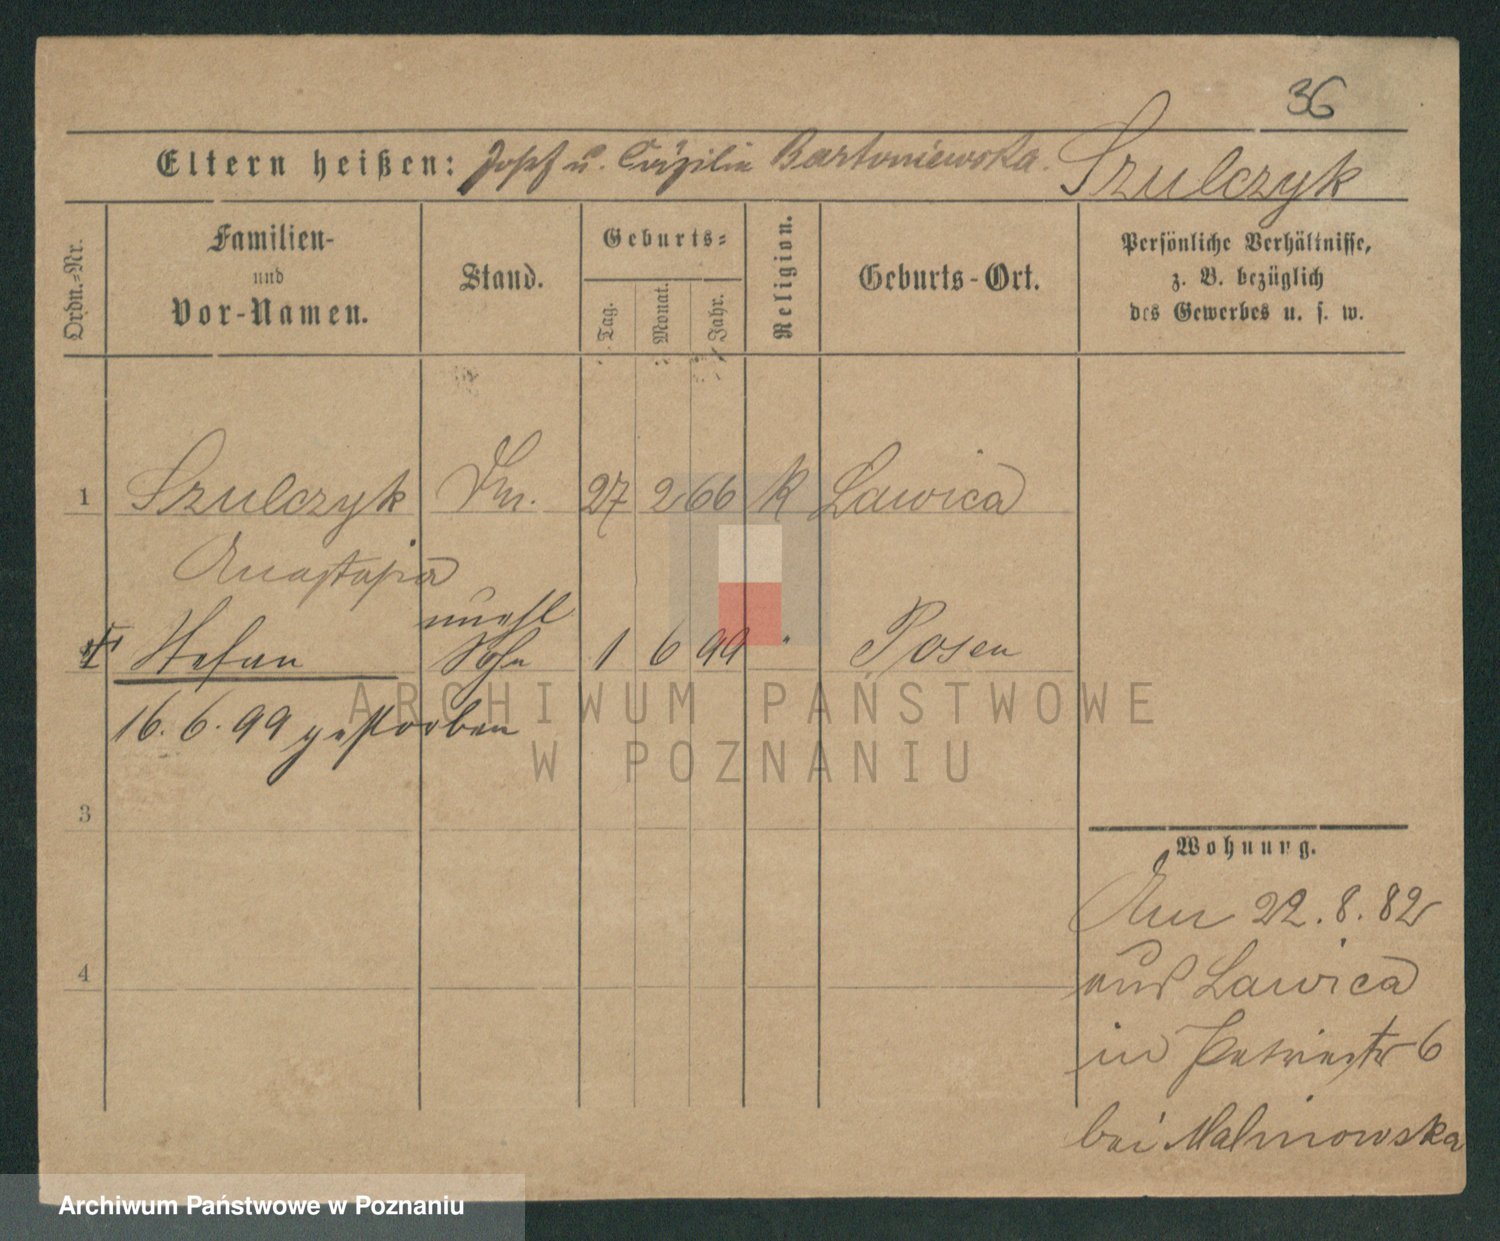 36
Eltern heißen: Josef u. Cäzilia Bartoniewska. Szulczyk
Ordn.-Nr.
Familien-
und
Vor-Namen.
Stand.
Geburts-
Tag.
Monat.
Jahr.
Religion.
Geburts-Ort.
Persönliche Verhältnisse,
z. B. bezüglich
des Gewerbes u. s. w.
1 Szulczyk 27 2 66 K Lawica
Anastasia
unehl
Stefan Sohn 1 6 99 " Posen
16.6.99 gestorben
ARCHIWUM PAŃSTWOWE
W POZNANIU
3
Wohnung.
Am 22.8.82
aus Lawica
4
in 6
bei Malinowska
Archiwum Państwowe w Poznaniu